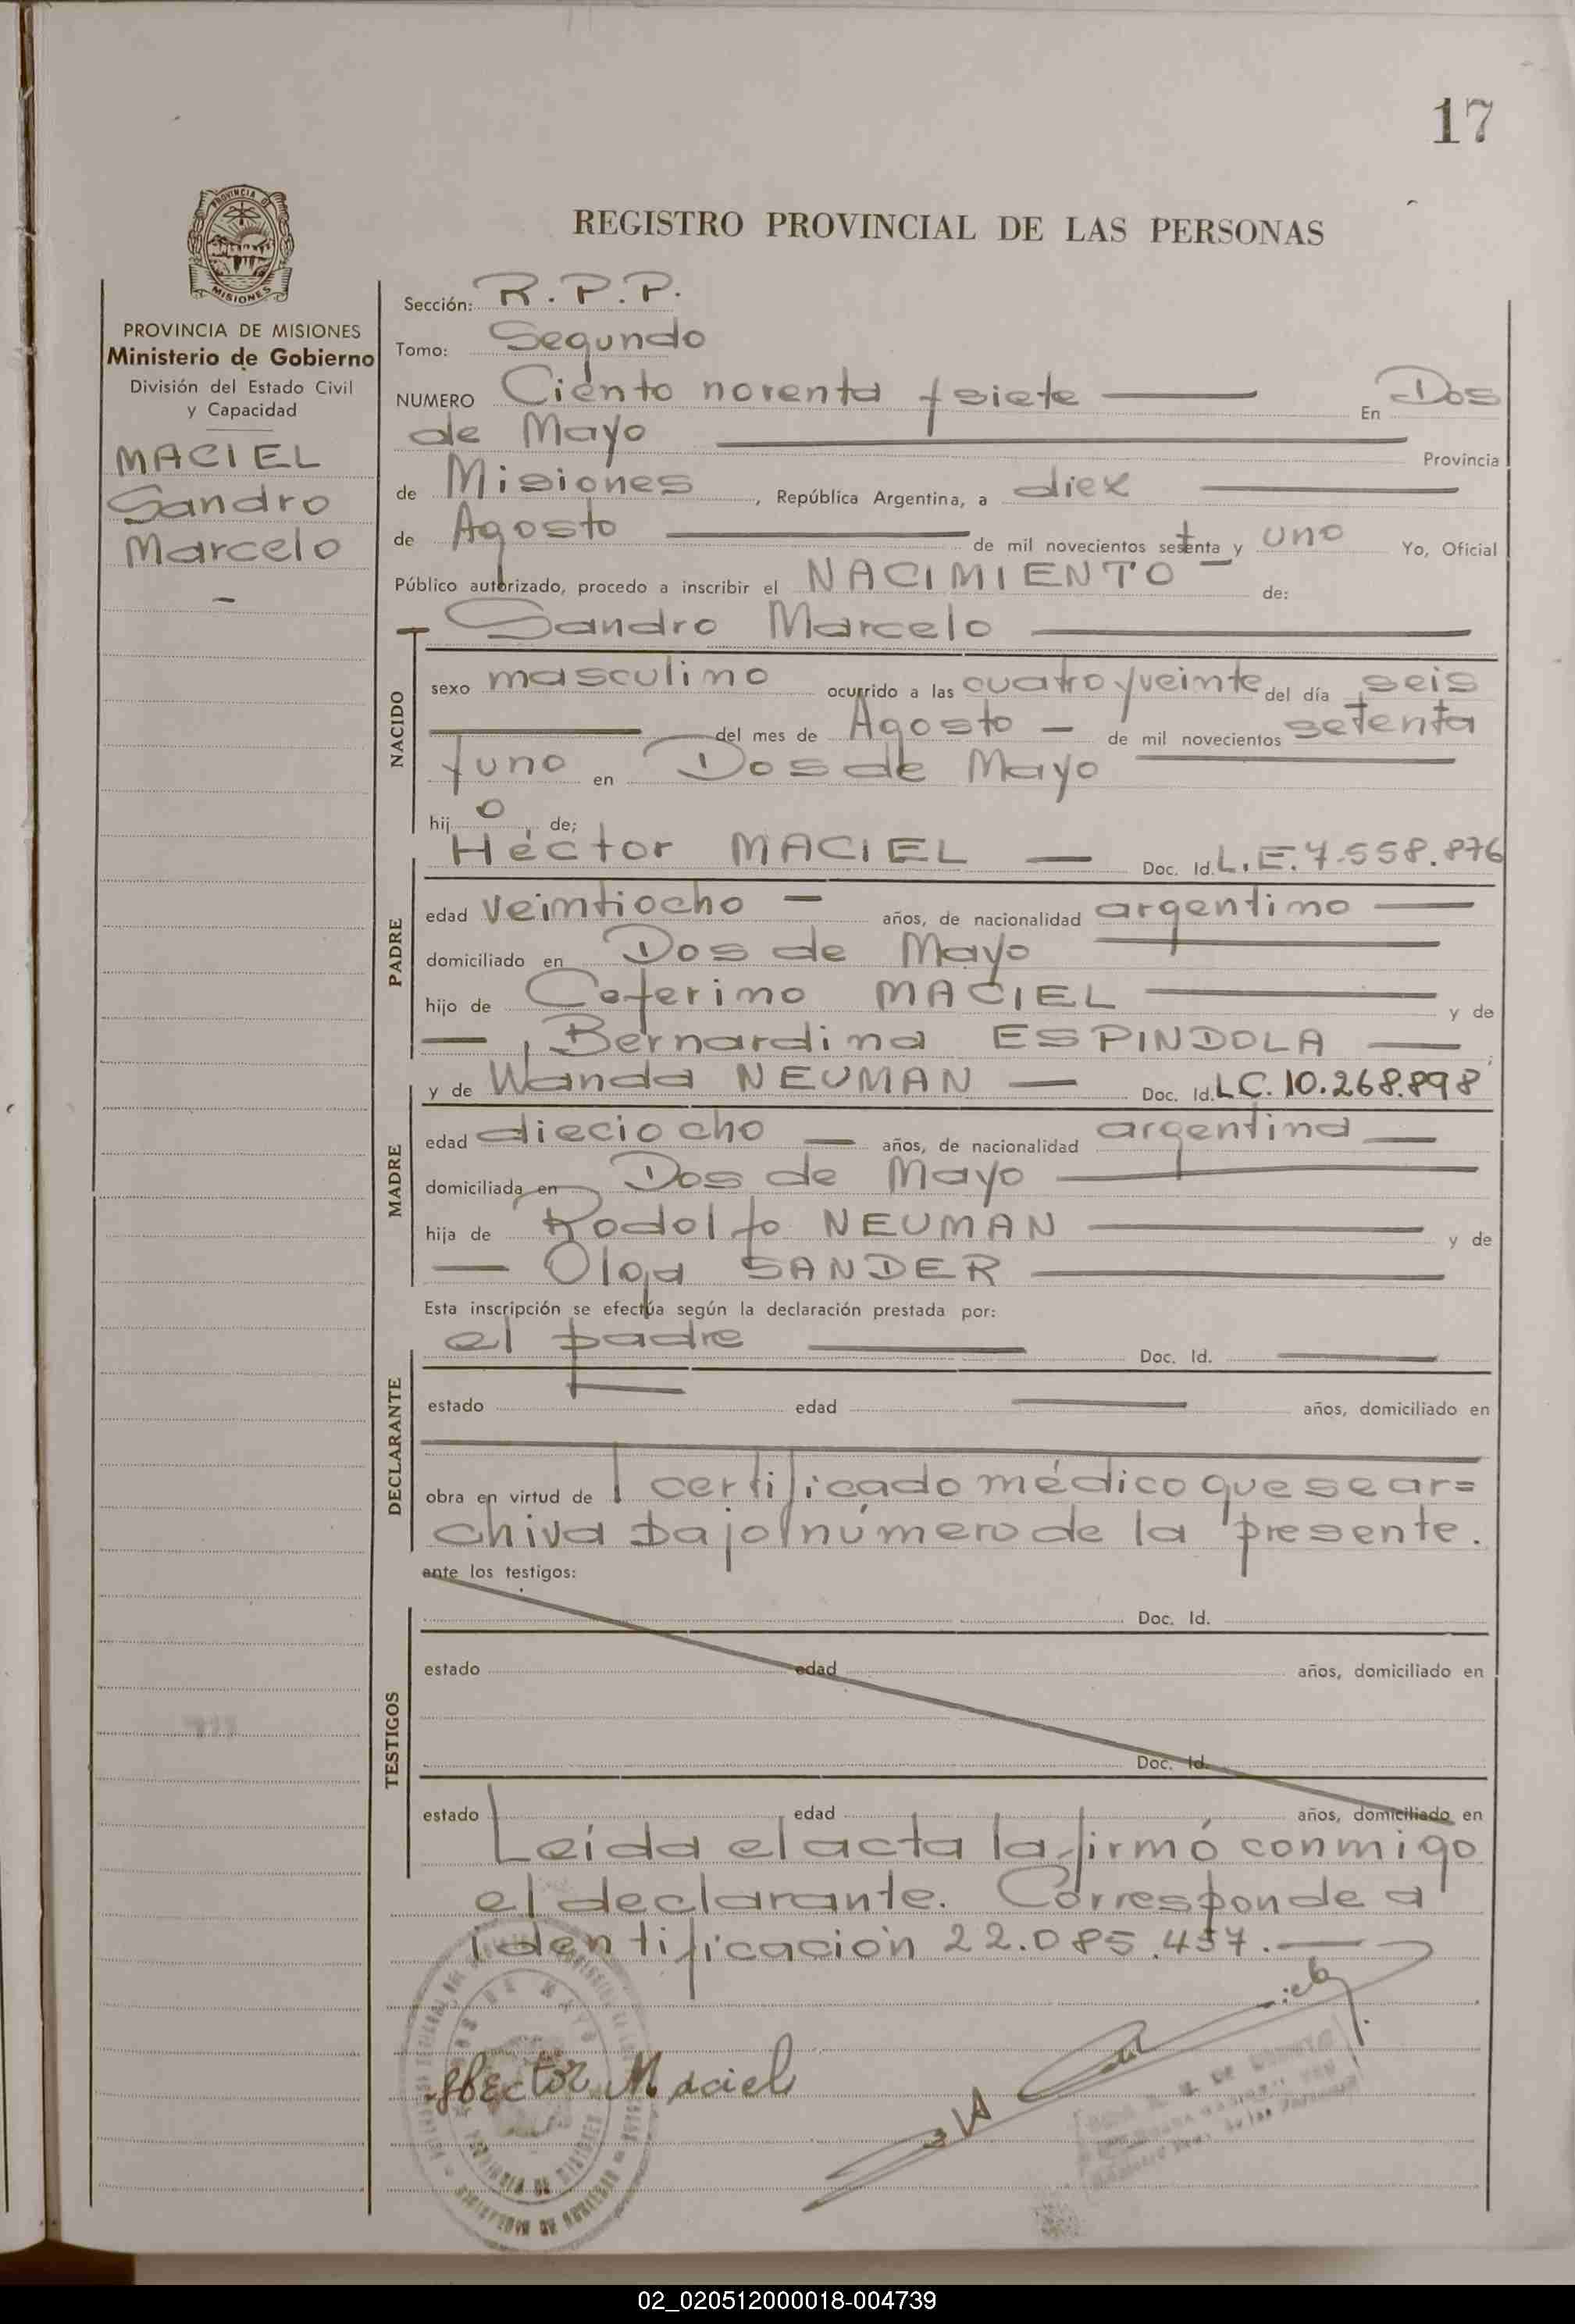 17
PROVINCIA DE
MISIONES
REGISTRO PROVINCIAL DE LAS PERSONAS
PROVINCIA DE MISIONES
Ministerio de Gobierno
División del Estado Civil
y Capacidad
MACIEL
Sandro
Marcelo
Sección: R.P.P.
Tomo: Segundo
NUMERO Ciento noventa y siete En Dos
de Mayo Provincia
de Misiones, República Argentina, a diez
de Agosto de mil novecientos setenta y uno Yo, Oficial
Público autorizado, procedo a inscribir el NACIMIENTO de:
Sandro Marcelo
NACIDO
sexo masculino ocurrido a las cuatro y veinte del día seis
del mes de Agosto - de mil novecientos setenta
y uno en Dos de Mayo
hijo de;
Héctor MACIEL Doc. Id. L.E. 7.558.876
PADRE
edad veintiocho - años, de nacionalidad argentino
domiciliado en Dos de Mayo
hijo de Ceferino MACIEL y de
Bernardina ESPINDOLA
y de Wanda NEUMAN Doc. Id. LC. 10.268.898
MADRE
edad dieciocho años, de nacionalidad argentina
domiciliada en Dos de Mayo
hija de Rodolfo NEUMAN y de
Olga SANDER
Esta inscripción se efectúa según la declaración prestada por:
el padre Doc. Id.
DECLARANTE
estado edad años, domiciliado en
obra en virtud de l certificado médico que se ar=
chiva bajo número de la presente.
ante los testigos:
Doc. Id.
TESTIGOS
estado edad años, domiciliado en
Doc. Id.
estado edad años, domiciliado en
Leída el acta la firmó conmigo
el declarante. Corresponde a
identificación 22.085.457.
Hector Maciel
02_020512000018-004739